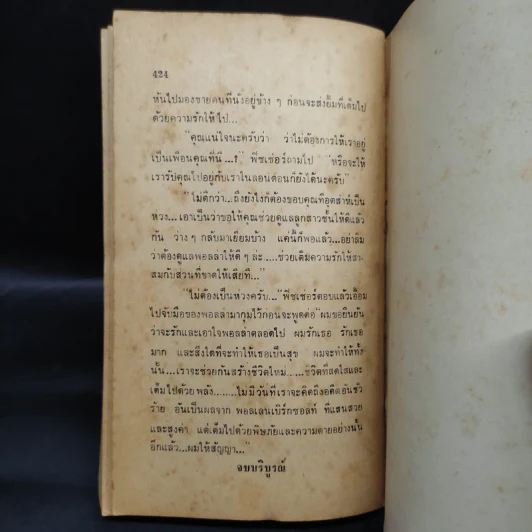 424
หันไปมองชายคนที่นั่งอยู่ข้าง ๆ ก่อนจะส่งยิ้มที่เต็มไป
ด้วยความรักให้ไป...
"คุณแน่ใจนะครับว่า ว่าไม่ต้องการให้เราอยู่
เป็นเพื่อนคุณที่นี่...?" พีชเช่อร์ถามไป "หรือจะให้
เรารับคุณไปอยู่กับเราในลอนดอนก็ยังได้นะครับ"
"ไม่ดีกว่า...ถึงยังไงก็ต้องขอบคุณที่อุตส่าห์เป็น
ห่วง...เอาเป็นว่าขอให้คุณช่วยดูแลลูกสาวชั้นให้ดีแล้ว
กัน ว่าง ๆ กลับมาเยี่ยมบ้าง แค่นี้ก็พอแล้ว...อย่าลืม
ว่าต้องดูแลพอลล่าให้ดี ๆ ล่ะ....ช่วยเติมความรักให้สา
สมกับส่วนที่ขาดให้เสียที..."
"ไม่ต้องเป็นห่วงครับ..."พีชเช่อร์ตอบแล้วเอื้อม
ไปจับมือของพอลล่ามากุมไว้ก่อนจะพูดต่อ"ผมขอยืนยัน
ว่าจะรักและเอาใจพอลล่าตลอดไป ผมรักเธอ รักเธอ
มาก และสิ่งใดที่จะทำให้เธอเป็นสุข ผมจะทำให้ทั้ง
นั้น....เราจะช่วยกันสร้างชีวิตใหม่.....ชีวิตที่สดใสและ
เต็มไปด้วยพลัง......ไม่มีวันที่เราจะคิดถึงอดีตอันชั่ว
ร้าย อันเป็นผลจาก พอลเลนเบิร์กซอลท์ ที่แสนสวย
และสูงค่า แต่เต็มไปด้วยพิษภัยและความตายอย่างนั้น
อีกแล้ว...ผมให้สัญญา..."
จบบริบูรณ์